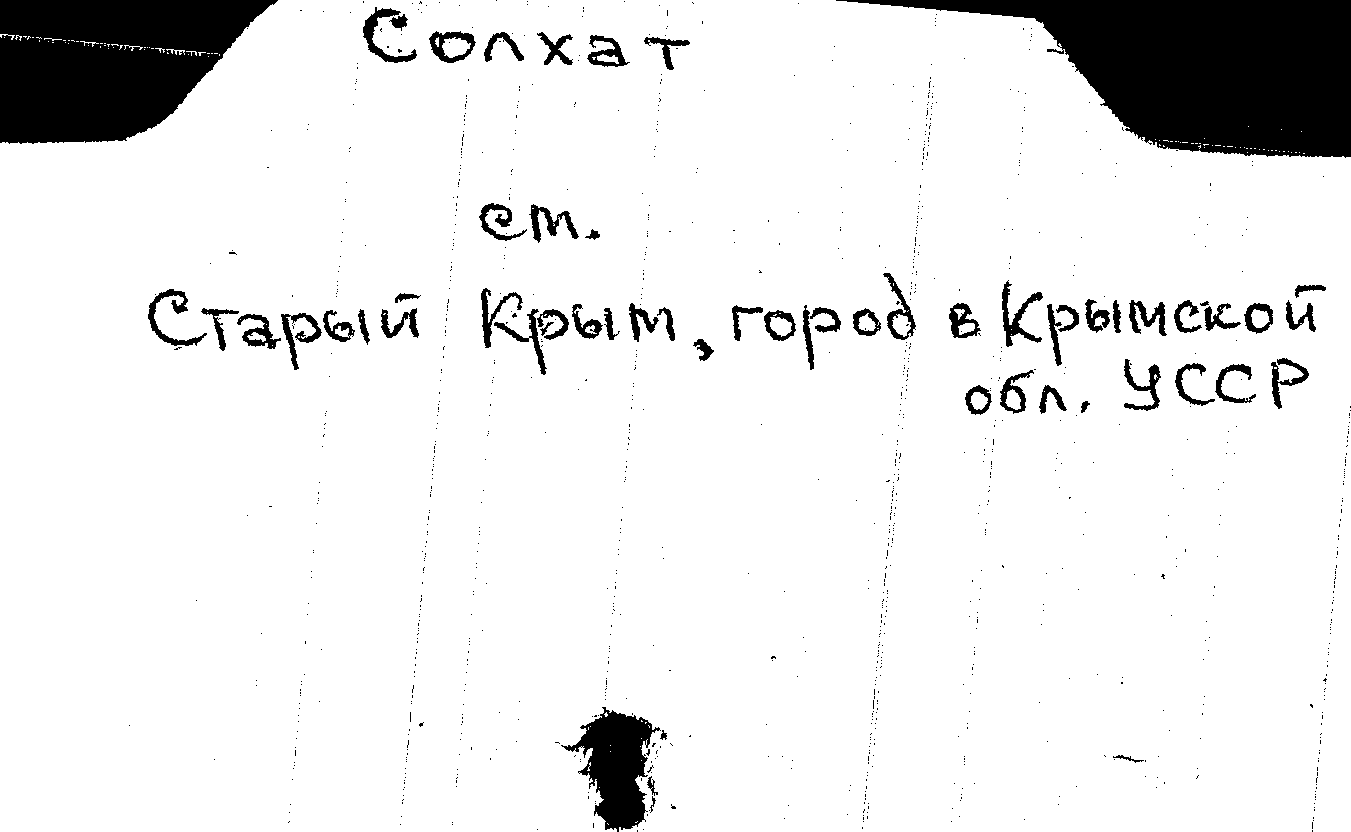 Солхат
ст.
Старый Крым, город в Крымской
обл. УССР